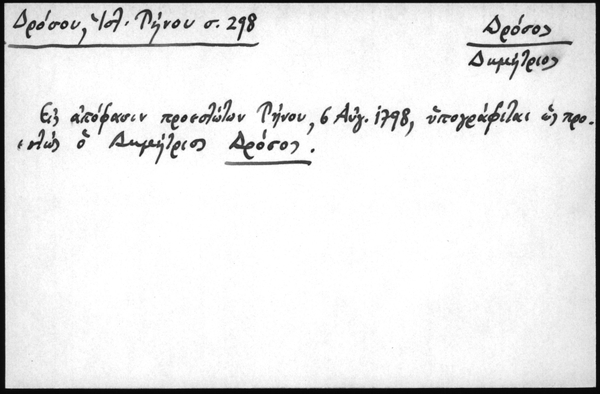 Δρόσου, Ἱστ. Τήνου σ. 298
Δρόσος
Δημήτριος
Εἰς ἀπόφασιν προεστώτων Τήνου, 6 Αὐγ. 1798, ὑπογράφεται ὡς προ-
εστώς ὁ Δημήτριος Δρόσος.